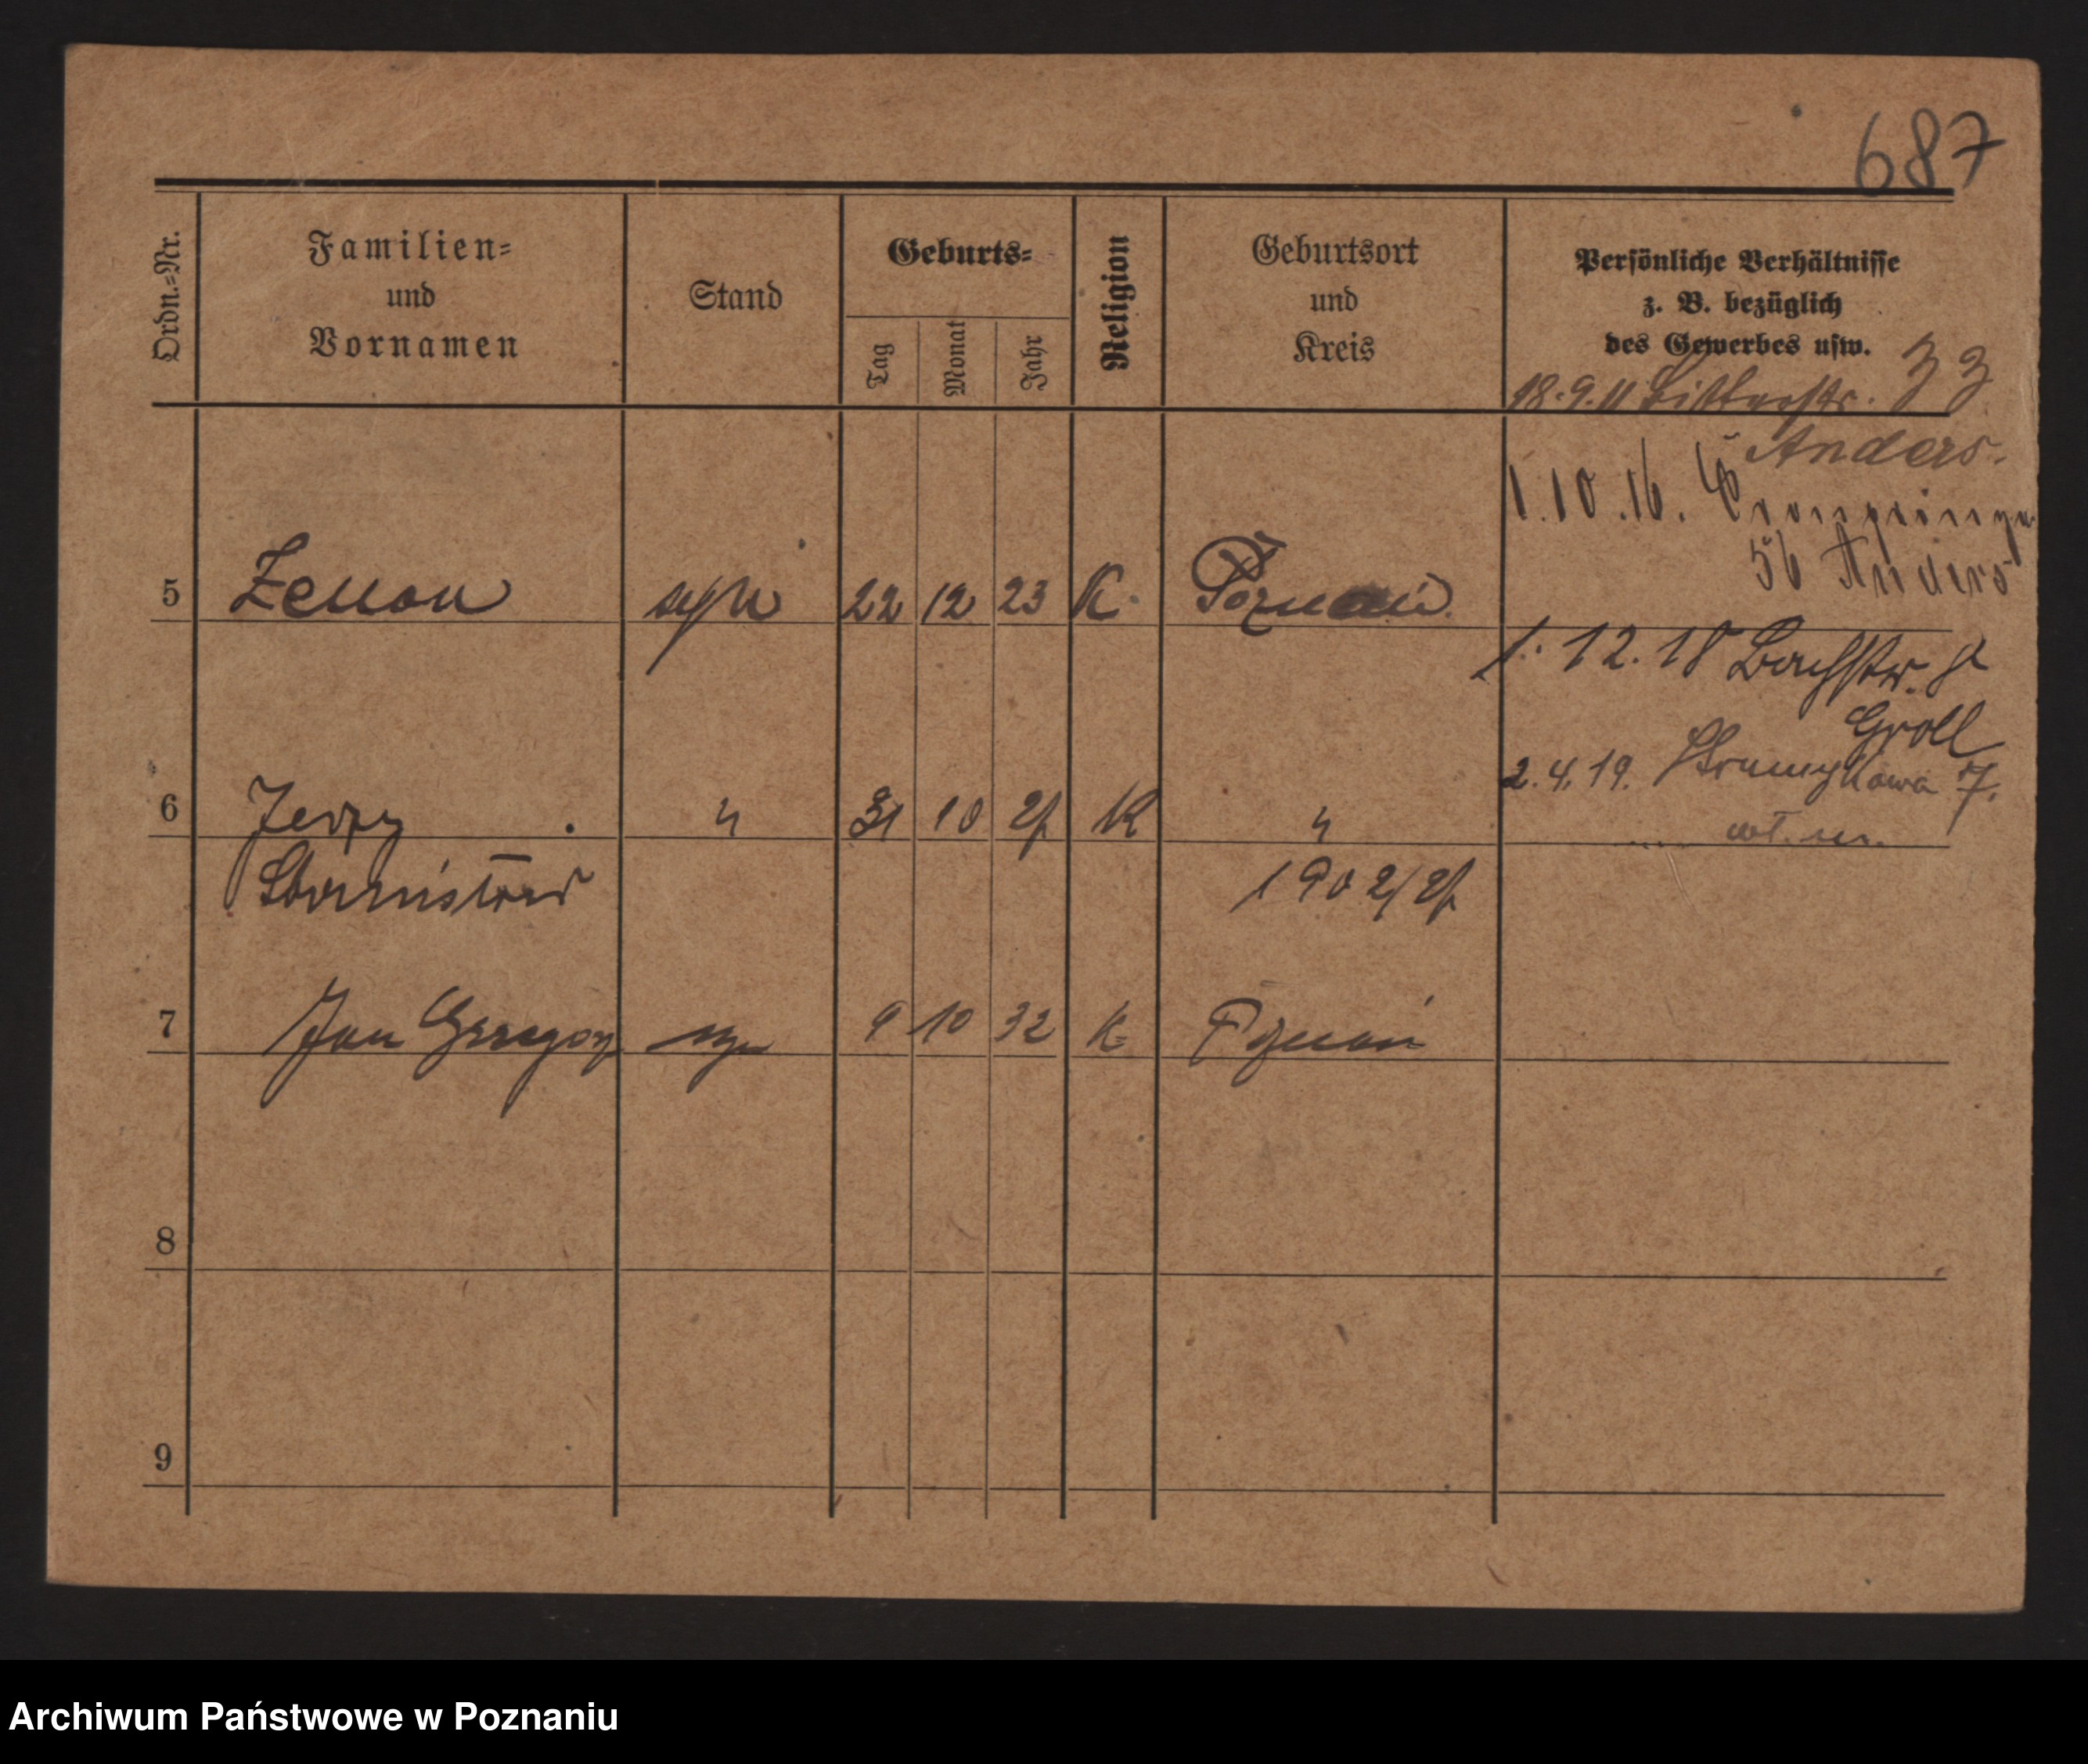 687
Ordn.=Nr.
Familien=
und
Vornamen
Stand
Geburts=
Tag
Monat
Jahr
Religion
Geburtsort
und
Kreis
Persönliche Verhältnisse
z. B. bezüglich
des Gewerbes usw.
18.9.11 Ritterstr. 33
Anders.
1.10.16. Kronprinzen
56 Anders
5 Zenon syn 22 12 23 K. Poznań
1. 12. 18 Bachstr. 7
Groll
2.4.19. Strumykowa 7.
wt. m.
6 Jerzy 〃 31 10 24 K 〃
Stanisław 1902/24
7 Jan Grzegorz syn 9 10 32 K Poznań
8
9
Archiwum Państwowe w Poznaniu